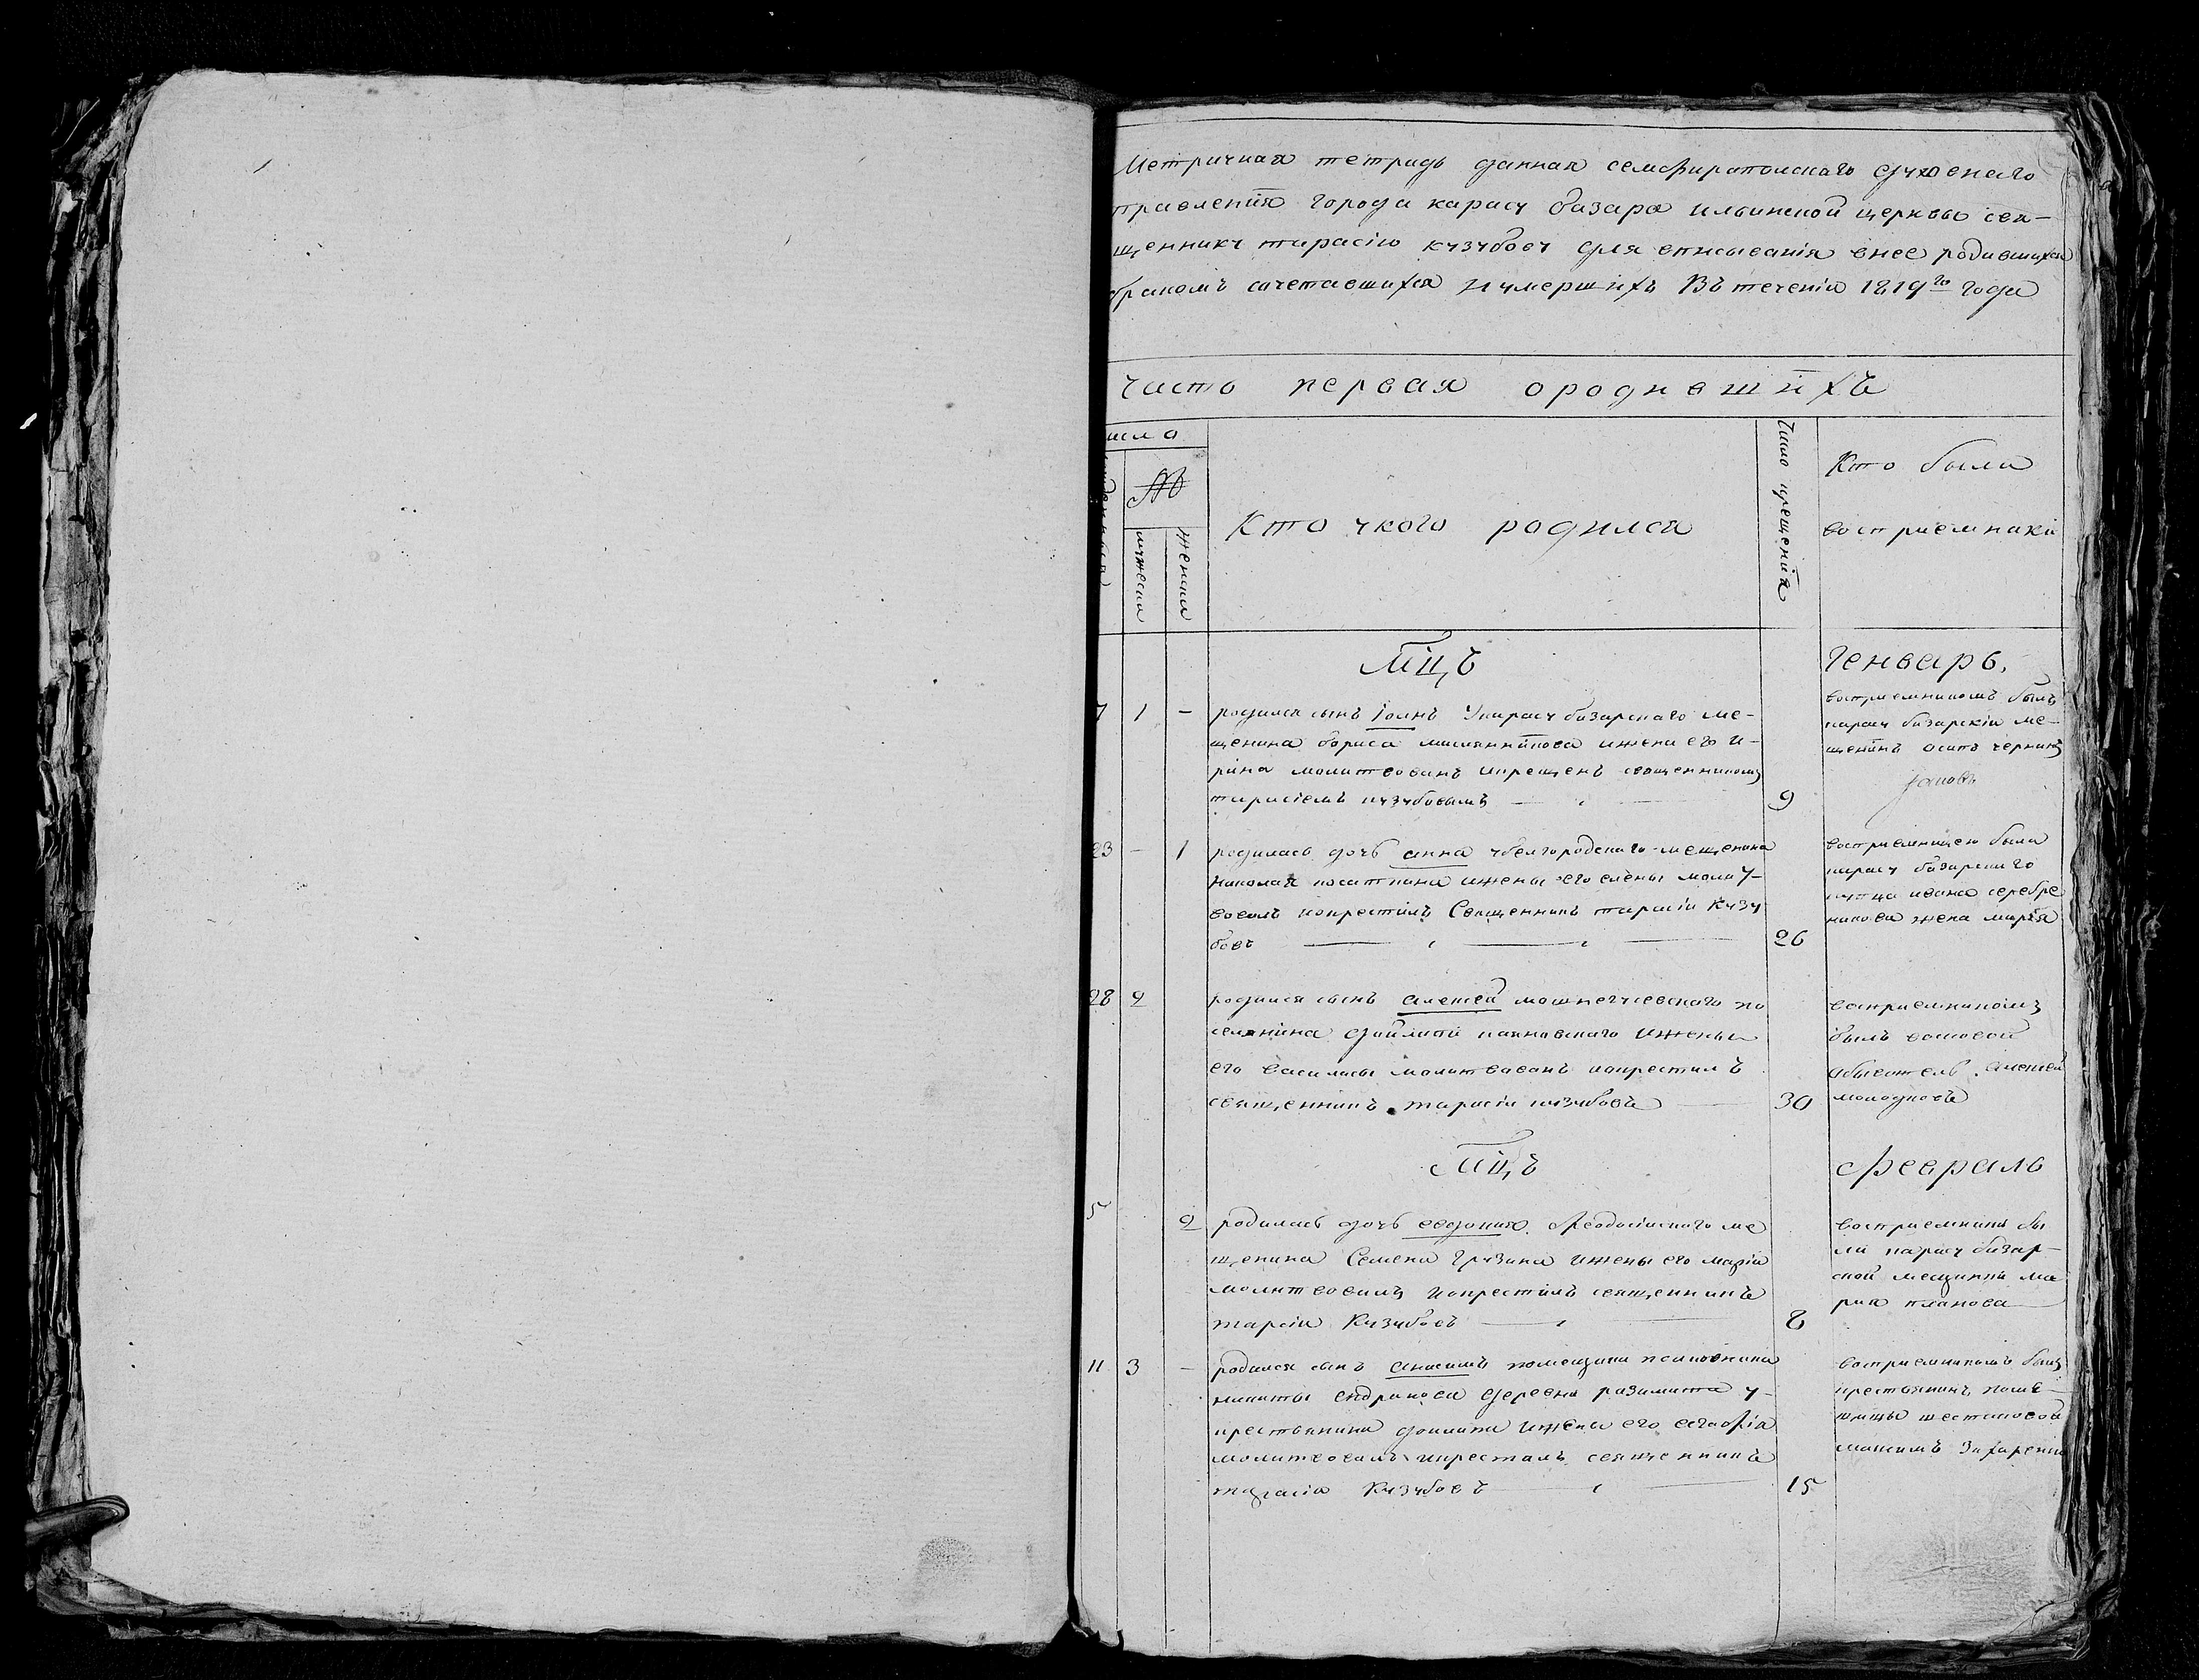 Метричная тетрадь данная семфиропольскаго духовнаго
правленія города карасу базара ильинской церквы свя-
щеннику тарасію кузубову для вписыванія внее родившихся
бракомъ сочетавшихся и умершихъ Въ теченіи 1819го года
Часть первая ородившихъ
числа
№
мужеска
женска
Кто укого родился
Число крещенія
Кто были
восприемники
Мцъ
Генварь,
7
1
-
родился сынъ іоанъ Укарасу базарскаго ме-
щенина бориса ижены его и-
рина молитвованъ икрещенъ священникомъ
тарасіемъ кузубовымъ
9
восприемникомъ былъ
карасу базарскій ме-
щенинъ осипъ
23
-
1
родилась дочь анна убелгородскаго мещенина
николая ижены его елены молит-
вовалъ икрестилъ Священникъ тарасіи Кузу
бовъ
26
восприемницею была
карасу базарскаго
купца ивана серебре
никова жена марія
28
2
родился сынъ алексей по
селянина ижены
его василисы молитвованъ икрестилъ
священникъ тарасіи кузубовъ
30
восприемникомъ
былъ
обыватель алексей
Мцъ
февраль
5
2
родилась дочь евдокия феодосійскаго ме
щенина Семена Грузина ижены его марія
молитвовалъ икрестилъ священникъ
тарсіи Кузубовъ
8
восприемники бы
ли карасу базар-
ской мещинки ма
рия
11
3
-
родился сынъ анисимъ помещика полковника
никиты деревни у-
крестьянина ижены его
молитвовалъ икрестилъ священникъ
тарасіи Кузубовъ
15
восприемникомъ былъ
крестьянинъ поме-
щицы шестаковой
максимъ Захаренко